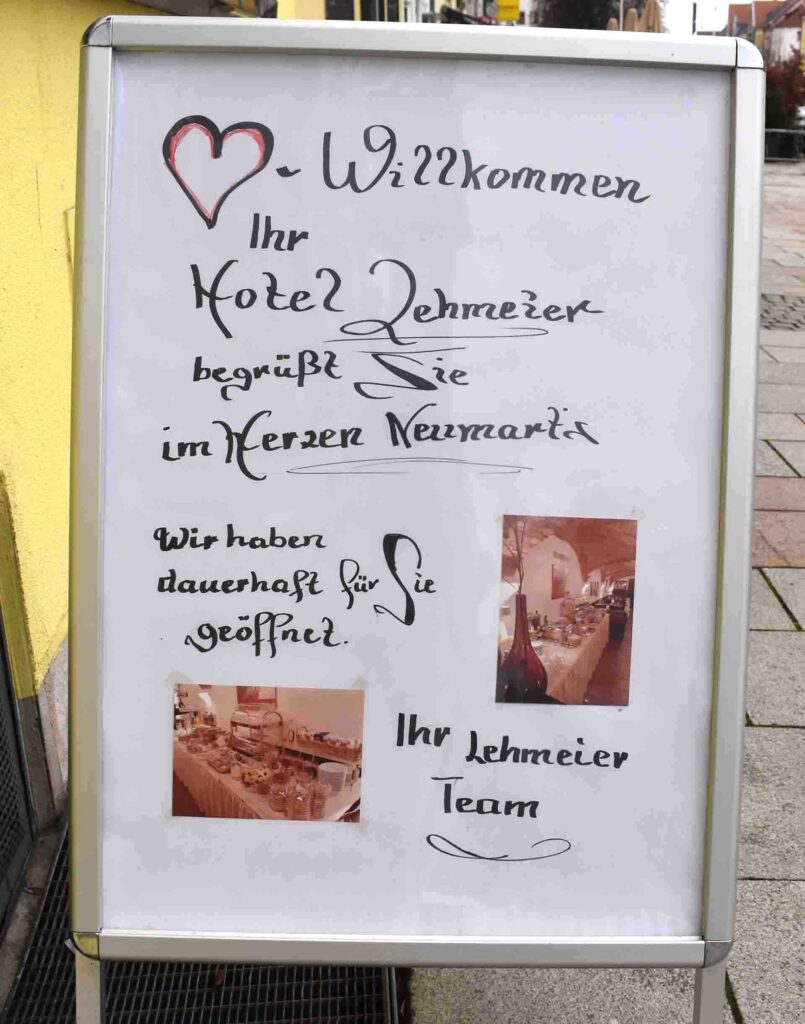 ♥-Willkommen
Ihr
Hotel Lehmeier
begrüßt Sie
im Herzen Neumarkts
Wir haben
dauerhaft für Sie
geöffnet.
Ihr Lehmeier
Team